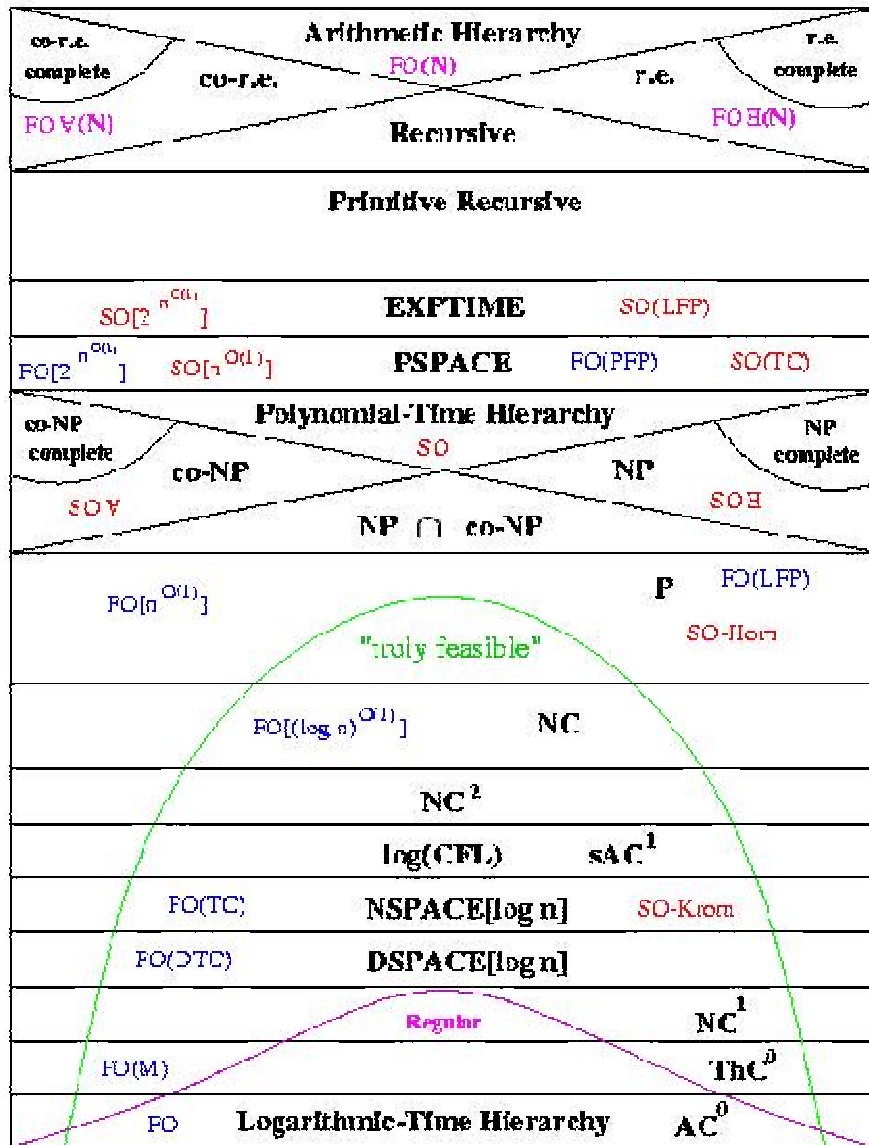 Arithmetic Hierarchy
co-r.e. complete
co-r.e.
FO(N)
r.e.
r.e. complete
FO∀(N)
FO∃(N)
Recursive
Primitive Recursive
SO[2^n^O(1)] EXPTIME SO(LFP)
FO[2^n^O(1)] SO[n^O(1)] PSPACE FO(PFP) SO(TC)
Polynomial-Time Hierarchy
co-NP complete
co-NP
SO
NP
NP complete
SO∀
SO∃
NP ∩ co-NP
FO[n^O(1)] P FO(LFP)
SO-Horn
"truly feasible"
FO[(log n)^O(1)] NC
NC^2
log(CFL) sAC^1
FO(TC) NSPACE[log n] SO-Krom
FO(DTC) DSPACE[log n]
Regular NC^1
FO(M) ThC^0
FO Logarithmic-Time Hierarchy AC^0